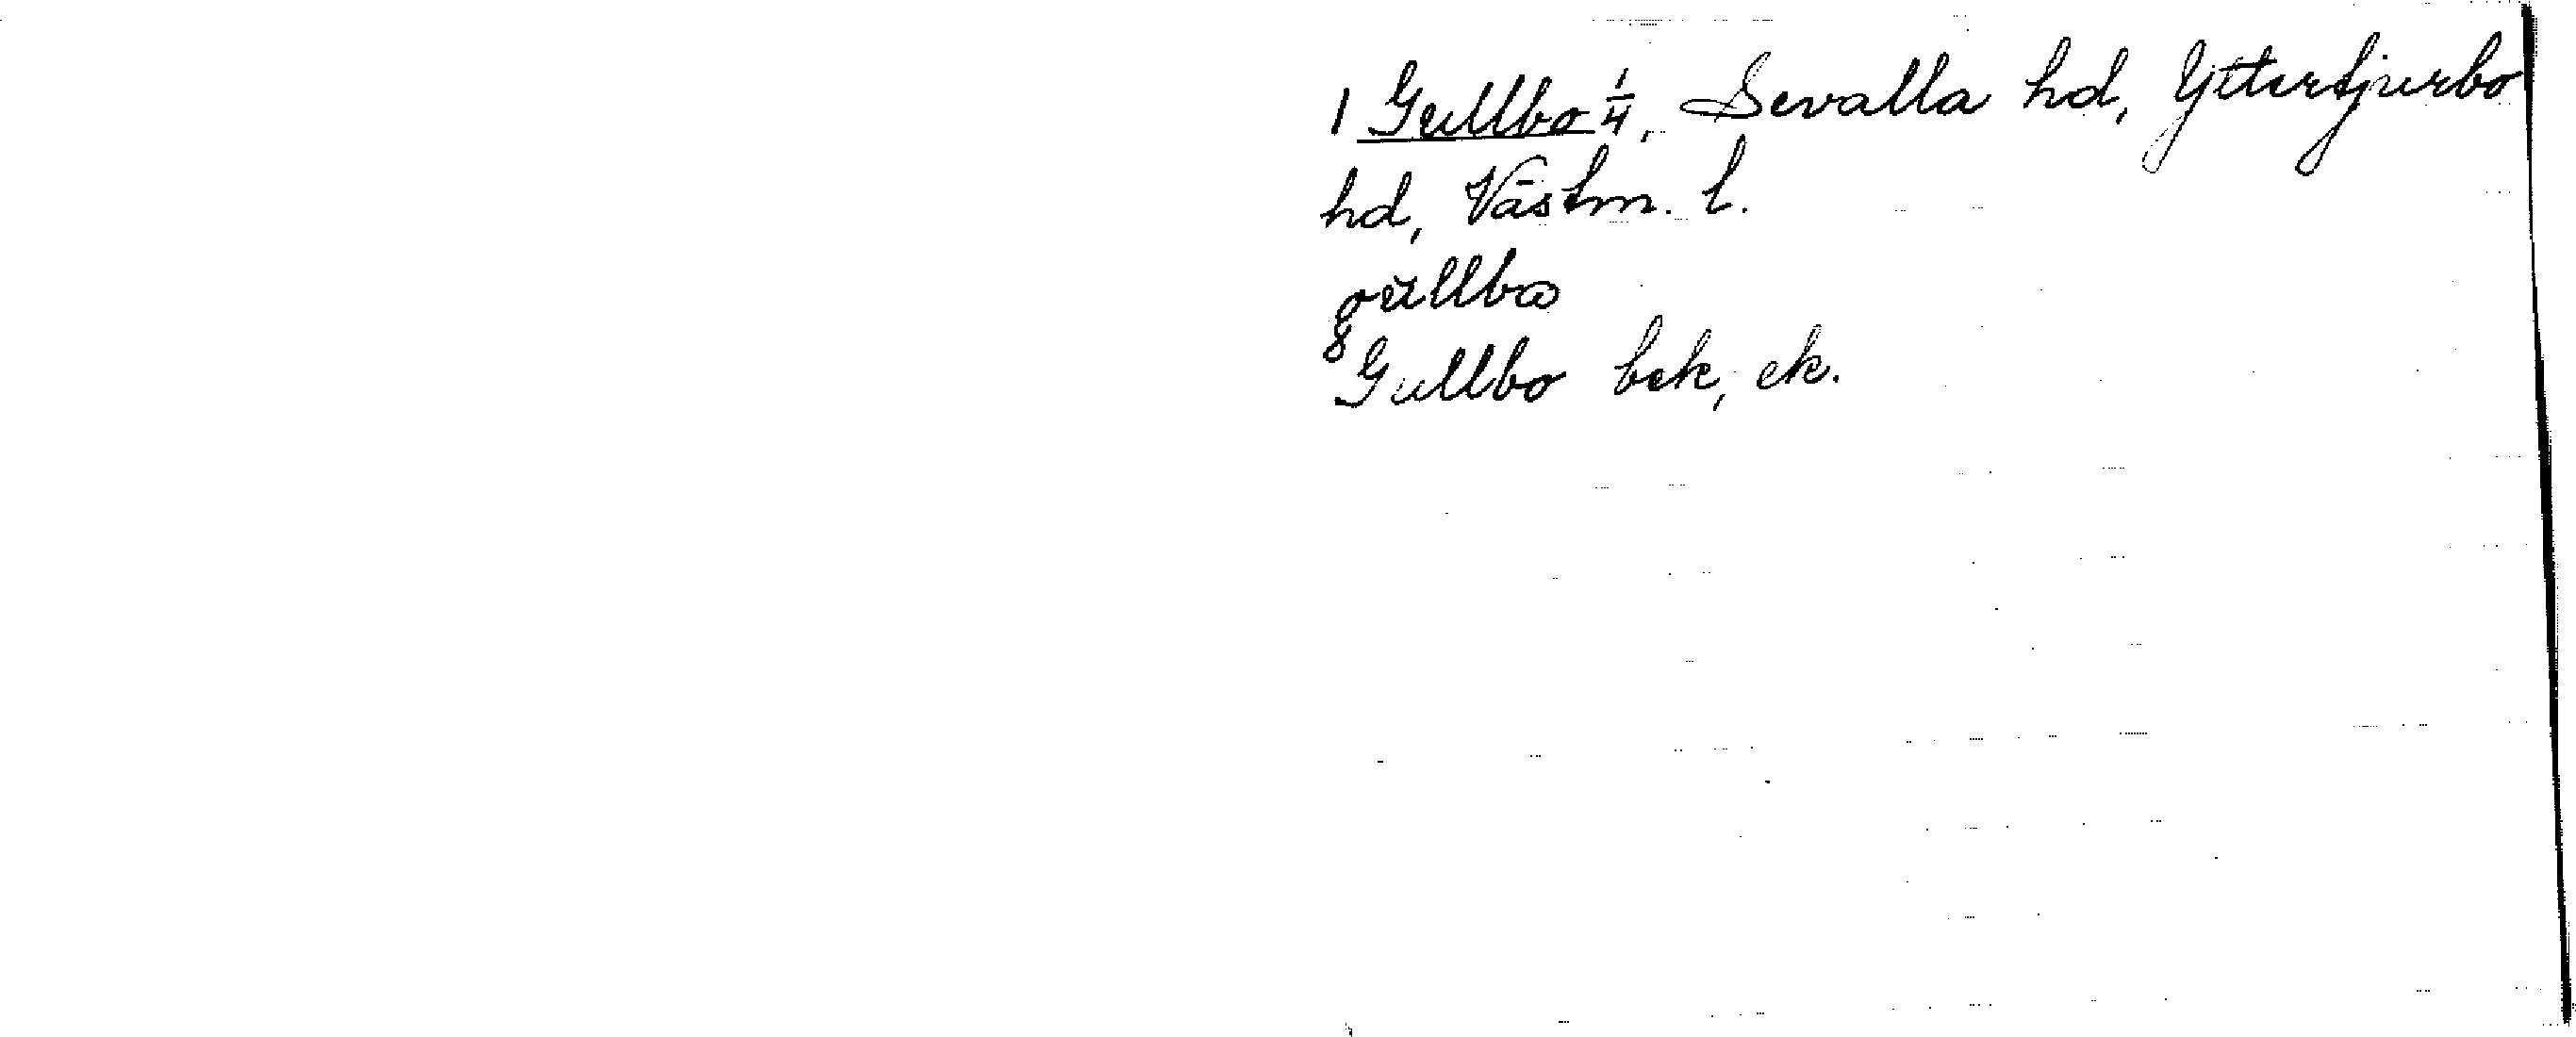 1 Gullbo 1/4, Sevalla hd, Yttertjurbo
hd, Västm. l.
gŭllbω
Gullbo bek, ek.